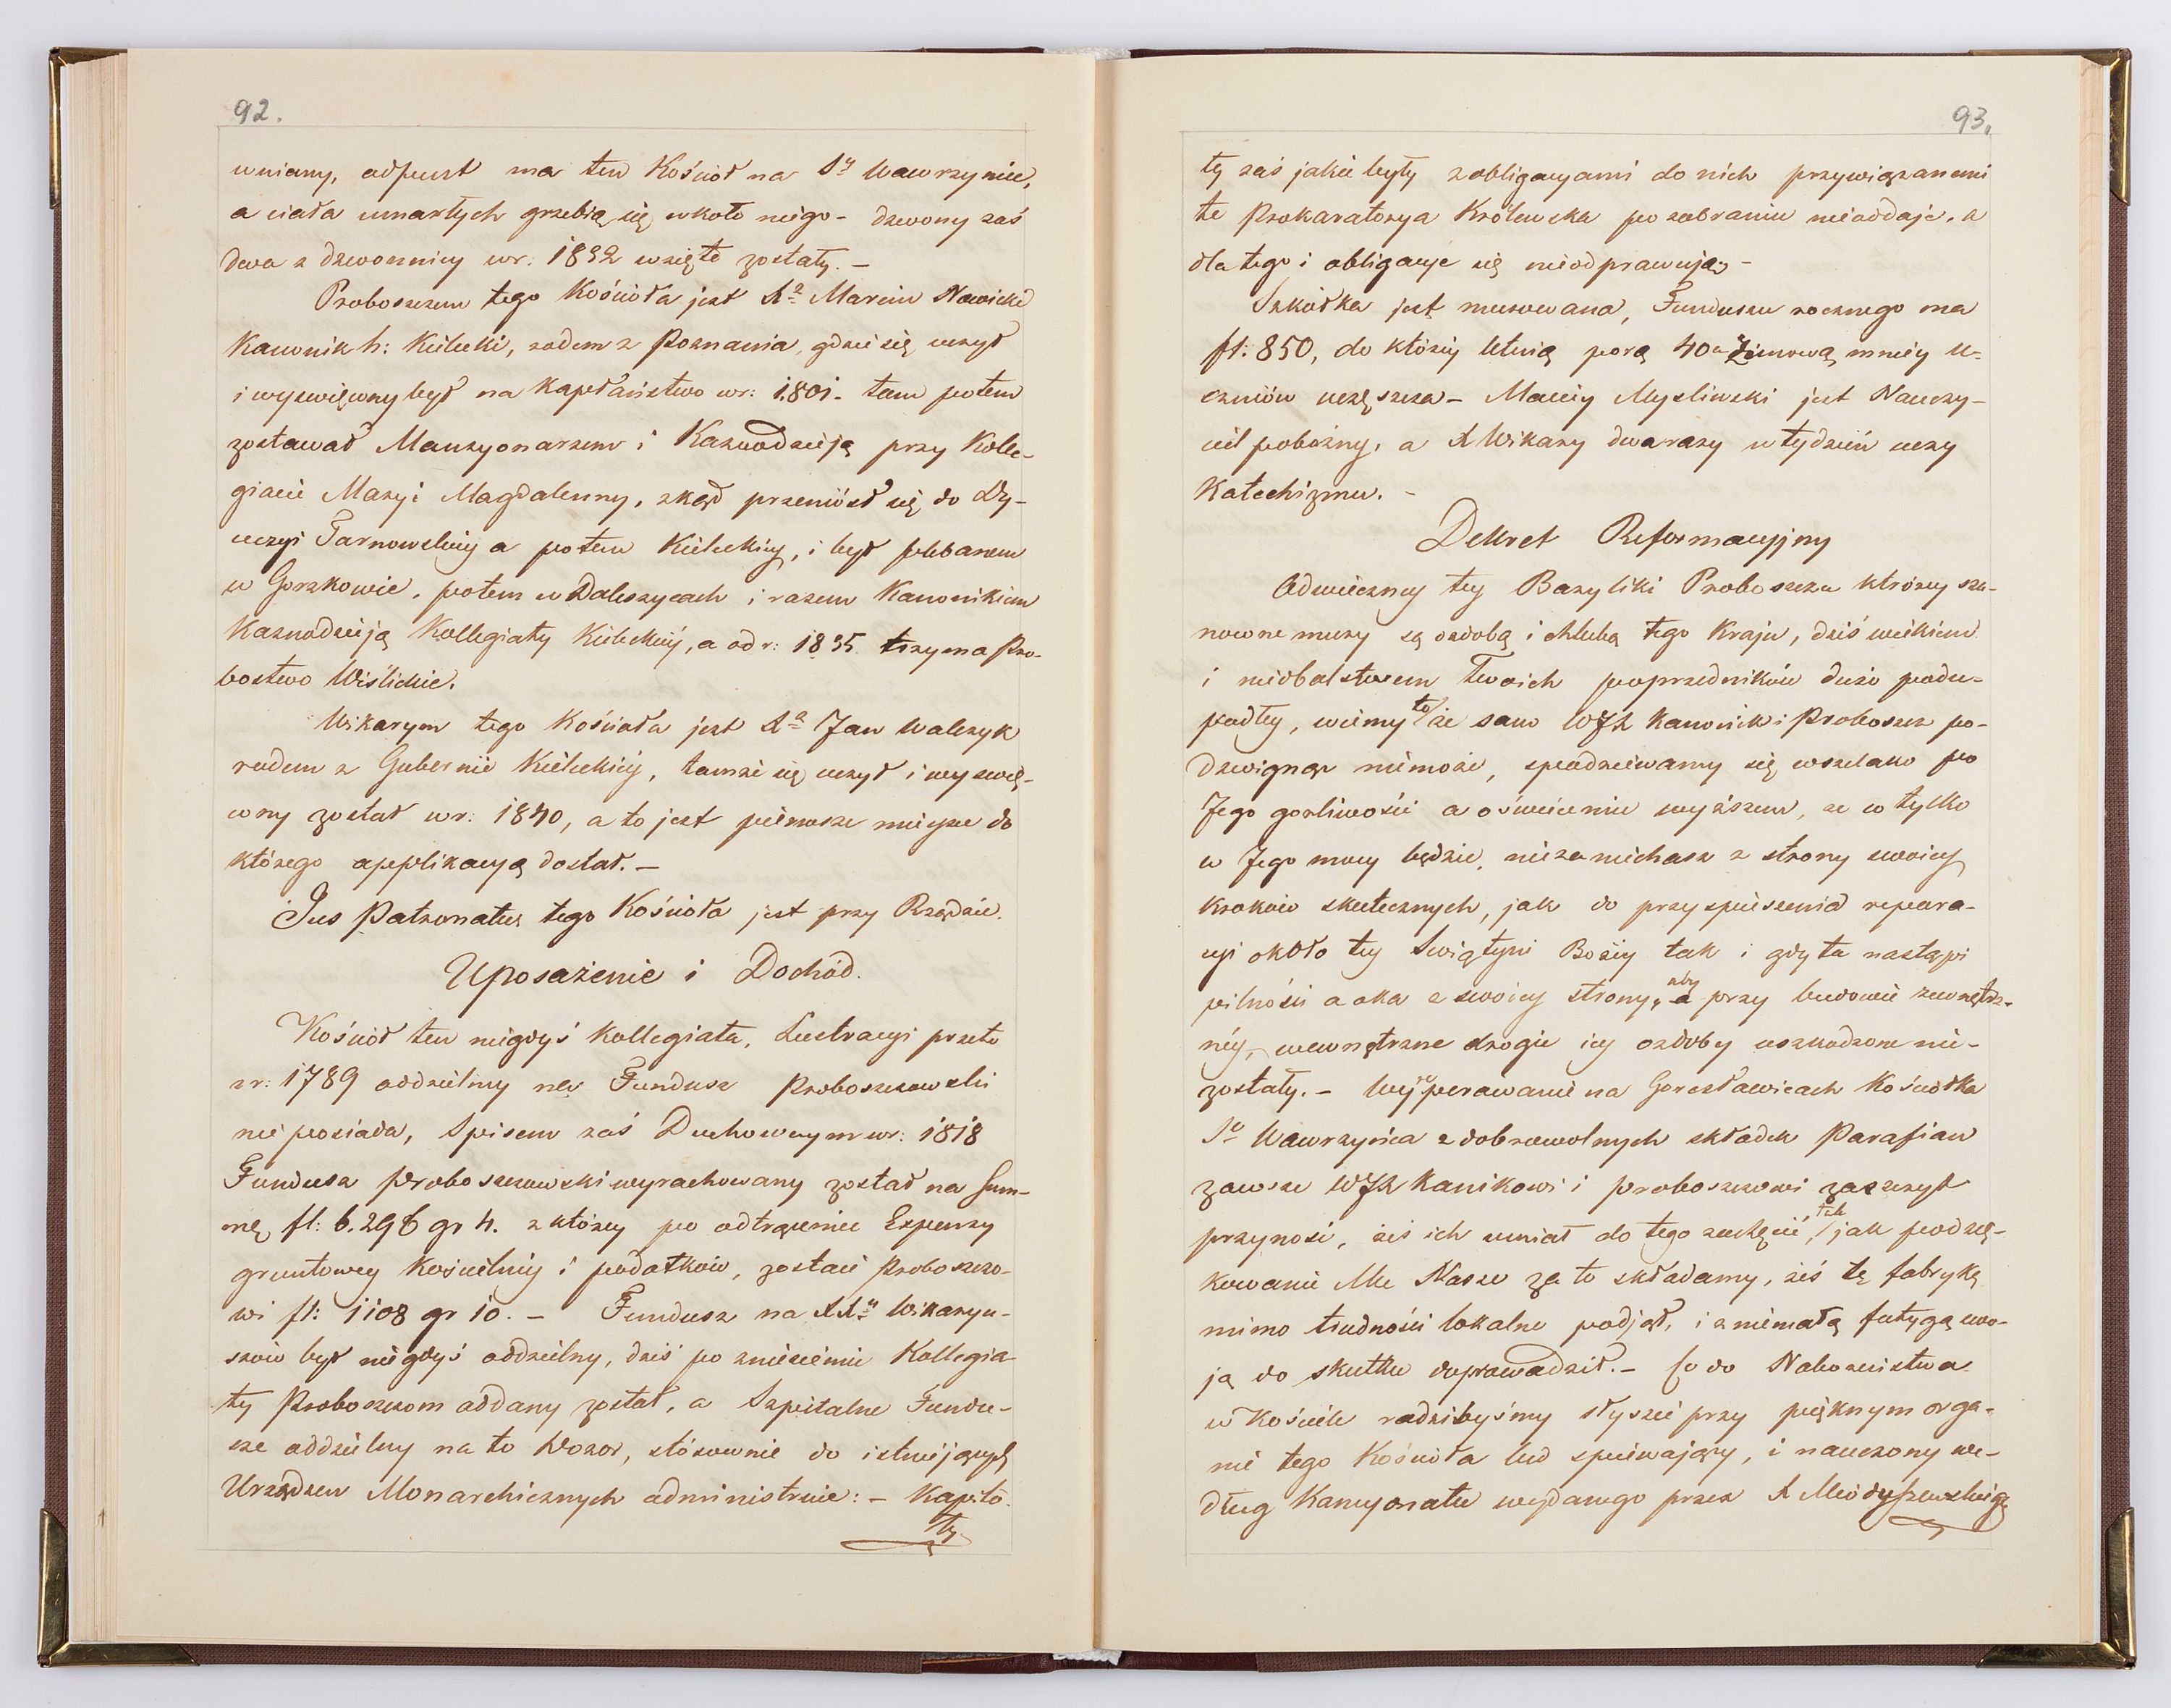 92.
wniany, odpust ma ten Kościoł na Sy Wawrzyniec,
a ciała umarłych grzebią się wkoło niego – dzwony zaś
dwa z dzwonnicy wr: 1832 wzięte zostały. –
Proboszczem tego Kościoła jest Xa Marcin Nowicki
Kanonik h: Kielecki, rodem z Poznania, gdzie się uczył
i wyswięcony był na Kapłaństwo wr: 1801 – tam potem
zostawał Mansyonarzem i Kaznodzieją przy Kolle-
giacie Maryi Magdalenny, zkąd przeniósł się do Dy-
ecezyi Tarnowskiey a potem Kieleckiey, i był plebanem
w Gorzkowie, potem w Daleszycach i razem Kanonikiem
Kaznodzieją Kollegiaty Kieleckiéj, a od r: 1835 trzyma Pro-
bostwo Wiślickie.
Wikarym tego Kościoła jest Xa Jan Walczyk
rodem z Gubernie Kieleckiéj, tamże się uczył i wyswię-
cony został wr: 1840, a to jest pierwsze mieysce do
którego applikacyą dostał. –
Jus Patronatus tego Kościoła jest przy Rządzie.
Uposażenie i Dochód.
Kościoł ten niegdyś Kollegiata, Lustracyi przeto
zr: 1789 oddzielny na Fundusz Proboszczowski
nie posiada, Spisem zaś Duchownym wr: 1818
Fundusz Proboszczowski wyrachowany został na Sum-
mę fl: 6.296 gr 4. z którey po odtrąceniu Expensy
gruntowey Kościelnéy i podatków, zostaie Proboszczo-
wi fl: 1108 gr 10. – Fundusz na XXy Wikaryu-
szów był niegdyś oddzielny, dziś po zniesieniu Kollegia-
ty Proboszczom oddany został, a Szpitalne Fundu-
sze oddzielny na to Dozor, stósownie do istniejących
Urządzen Monarchicznych administruie: – Kapita-
ły
93.
ły zaś jakie były z obligacyami do nich przywiązanemi
te Prokuratorya Królewska po zabraniu nieoddaje, a
dla tego i obligacye się nieodprawują –
Szkółka jest murowana, Funduszu rocznego ma
fl: 850, do któréy letnią porą 40 a Zimową mniéy u-
czniów uczęszcza – Maciéy Mysliwski jest Nauczy-
ciel pobożny, a X Wikary dwa razy w tydzień uczy
Katechizmu. –
Dekret Reformacyjny
Odwieczney tey Bazyliki Proboszczu którey sza-
nowne mury są ozdobą i chlubą tego Kraju, dziś wiekiem
i niedbalstwem Twoich poprzedników dużo podu-
padłey, wiemy to że sam WJX Kanonik i Proboszcz po-
dzwignąc niemoże, spodziewamy się wszelako po
Jego gorliwości a oświeceniu wyższem, że co tylko
w Jego mocy będzie, niezaniechasz z strony swoiey
kroków skutecznych, jak do przyspieszenia repara-
cyi około tey Swiątyni Bożéy tak i gdy ta nastąpi
pilności a oka z swoiey strony, aby przy budowie zewnętrz-
néy, wewnętrzne drogie iey ozdoby uszkodzone nie-
zostały. – Wyreperowanie na Gorysławicach Kościołka
So Wawrzyńca z dobrowolnych składek Parafian
zawsze WJX Kanikowi i proboszczowi zaszczyt
przynosi, żeś ich umiał do tego zachęcić, tak jak podzię-
kowanie Mu Nasze za to składamy, żeś tę fabrykę
mimo trudności lokalne podjął, i z niemałą fatygą swo-
ją do skutku doprowadził. – Co do Nabozeństwa
w Kościele radzibyśmy słyszeć przy pięknym orga-
nie tego Kościoła lud spiewający, i nauczony we-
dług Kancyonału wydanego przez X Mioduszewskiego